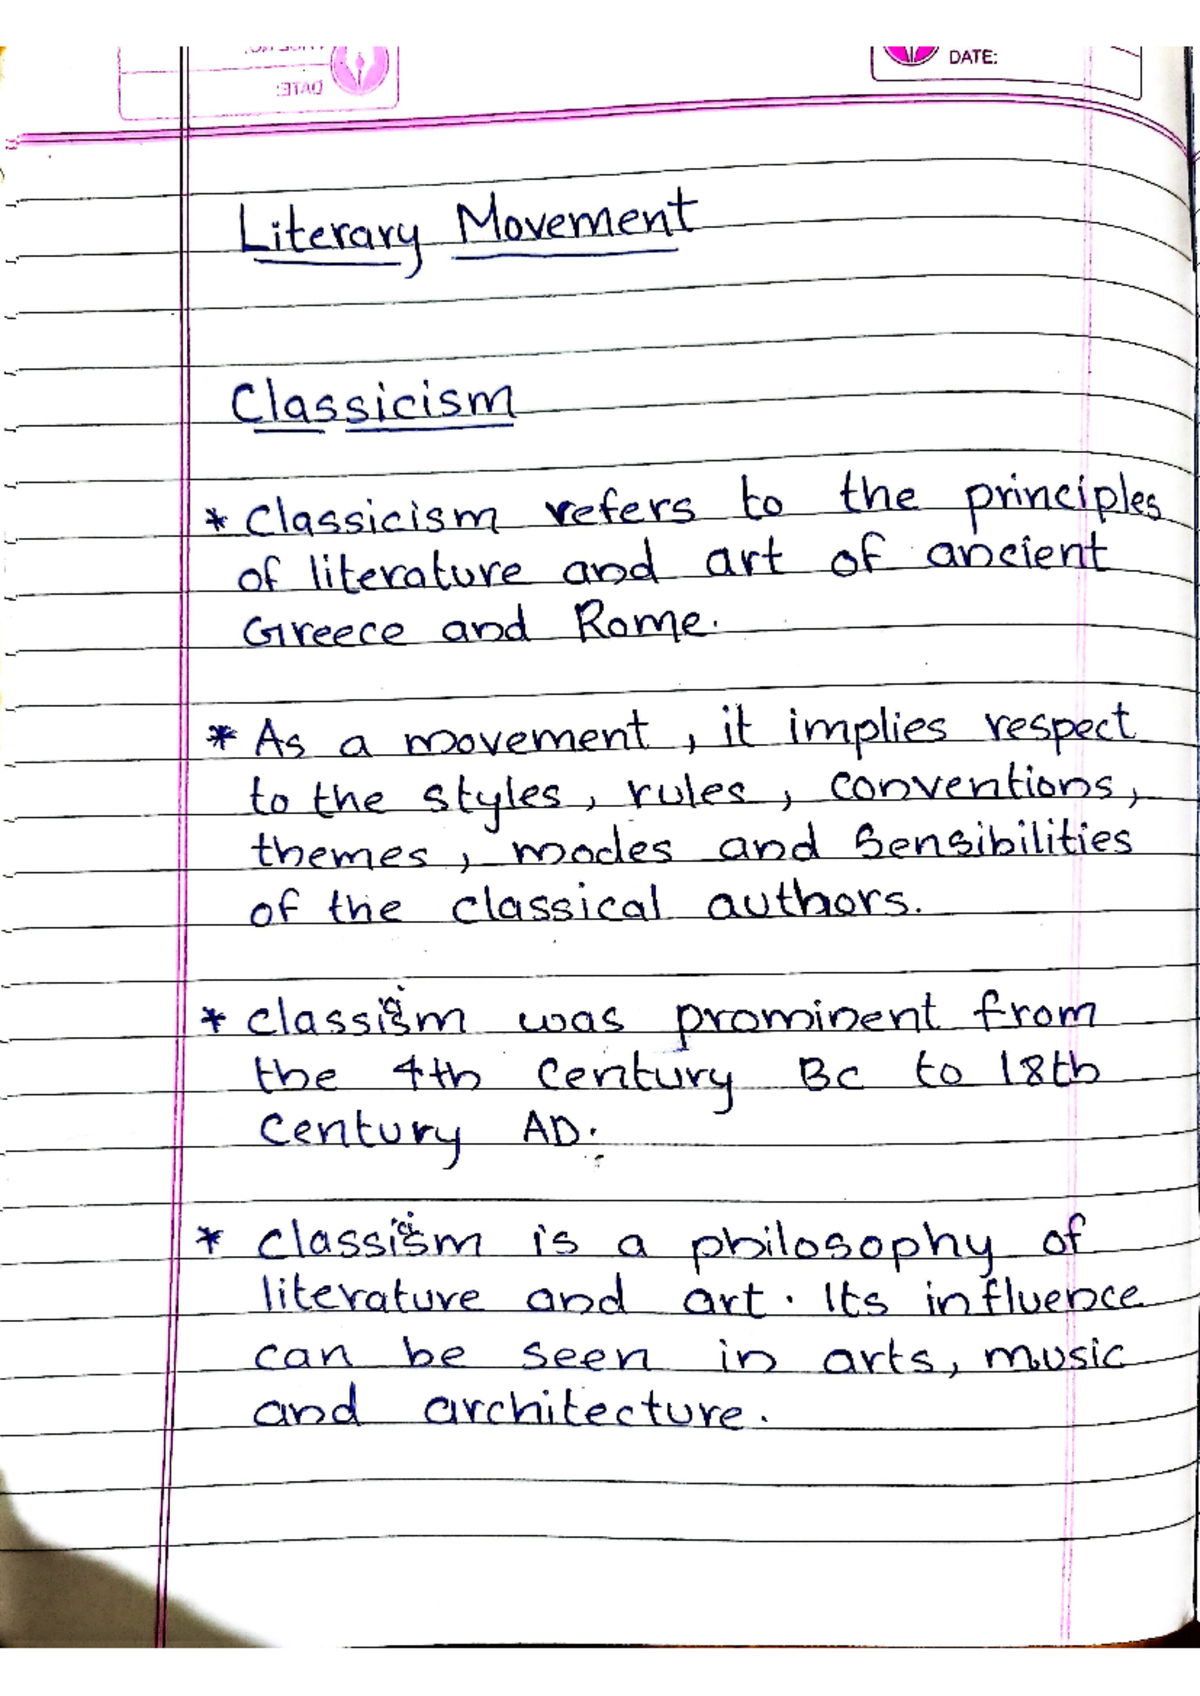 DATE:
DATE:
Literary Movement
Classicism
* Classicism refers to the principles
of literature and art of ancient
Greece and Rome.
* As a movement, it implies respect
to the styles, rules, conventions,
themes, modes and Sensibilities
of the classical authors.
* classicism was prominent from
the 4th Century BC to 18th
Century AD.
* classicism is a philosophy of
literature and art. Its influence
can be seen in arts, music
and architecture.